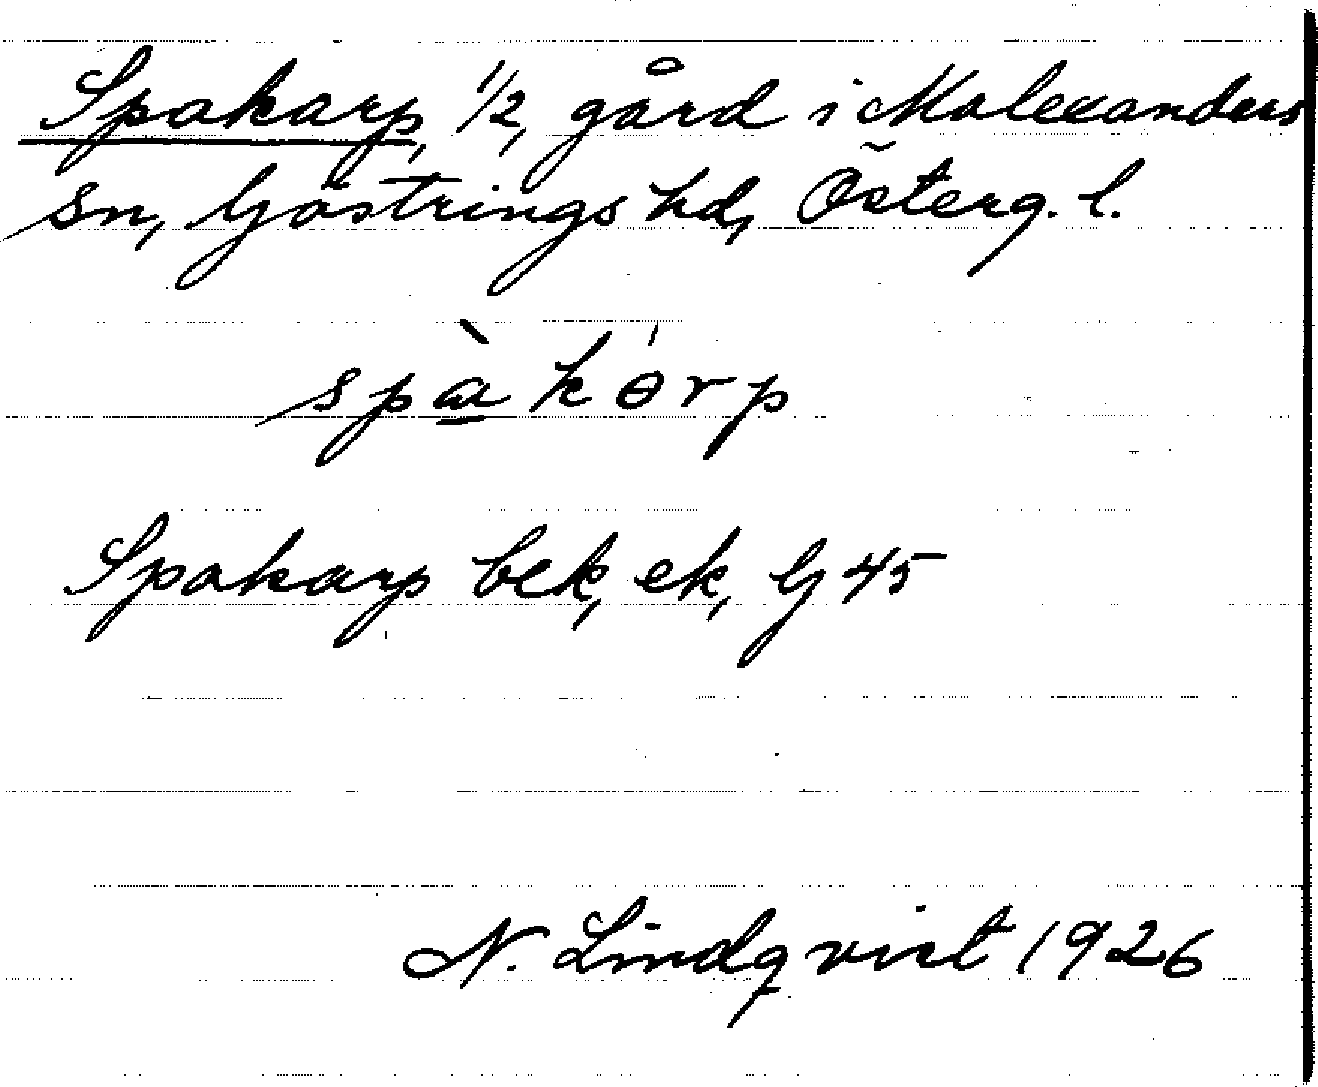 Spakarp, 1/2, gård i Malexanders
sn, Göstrings hd, Österg. l.
spà̲kɵ́rp
Spakarp bek, ek, G 45
N. Lindqvist 1926